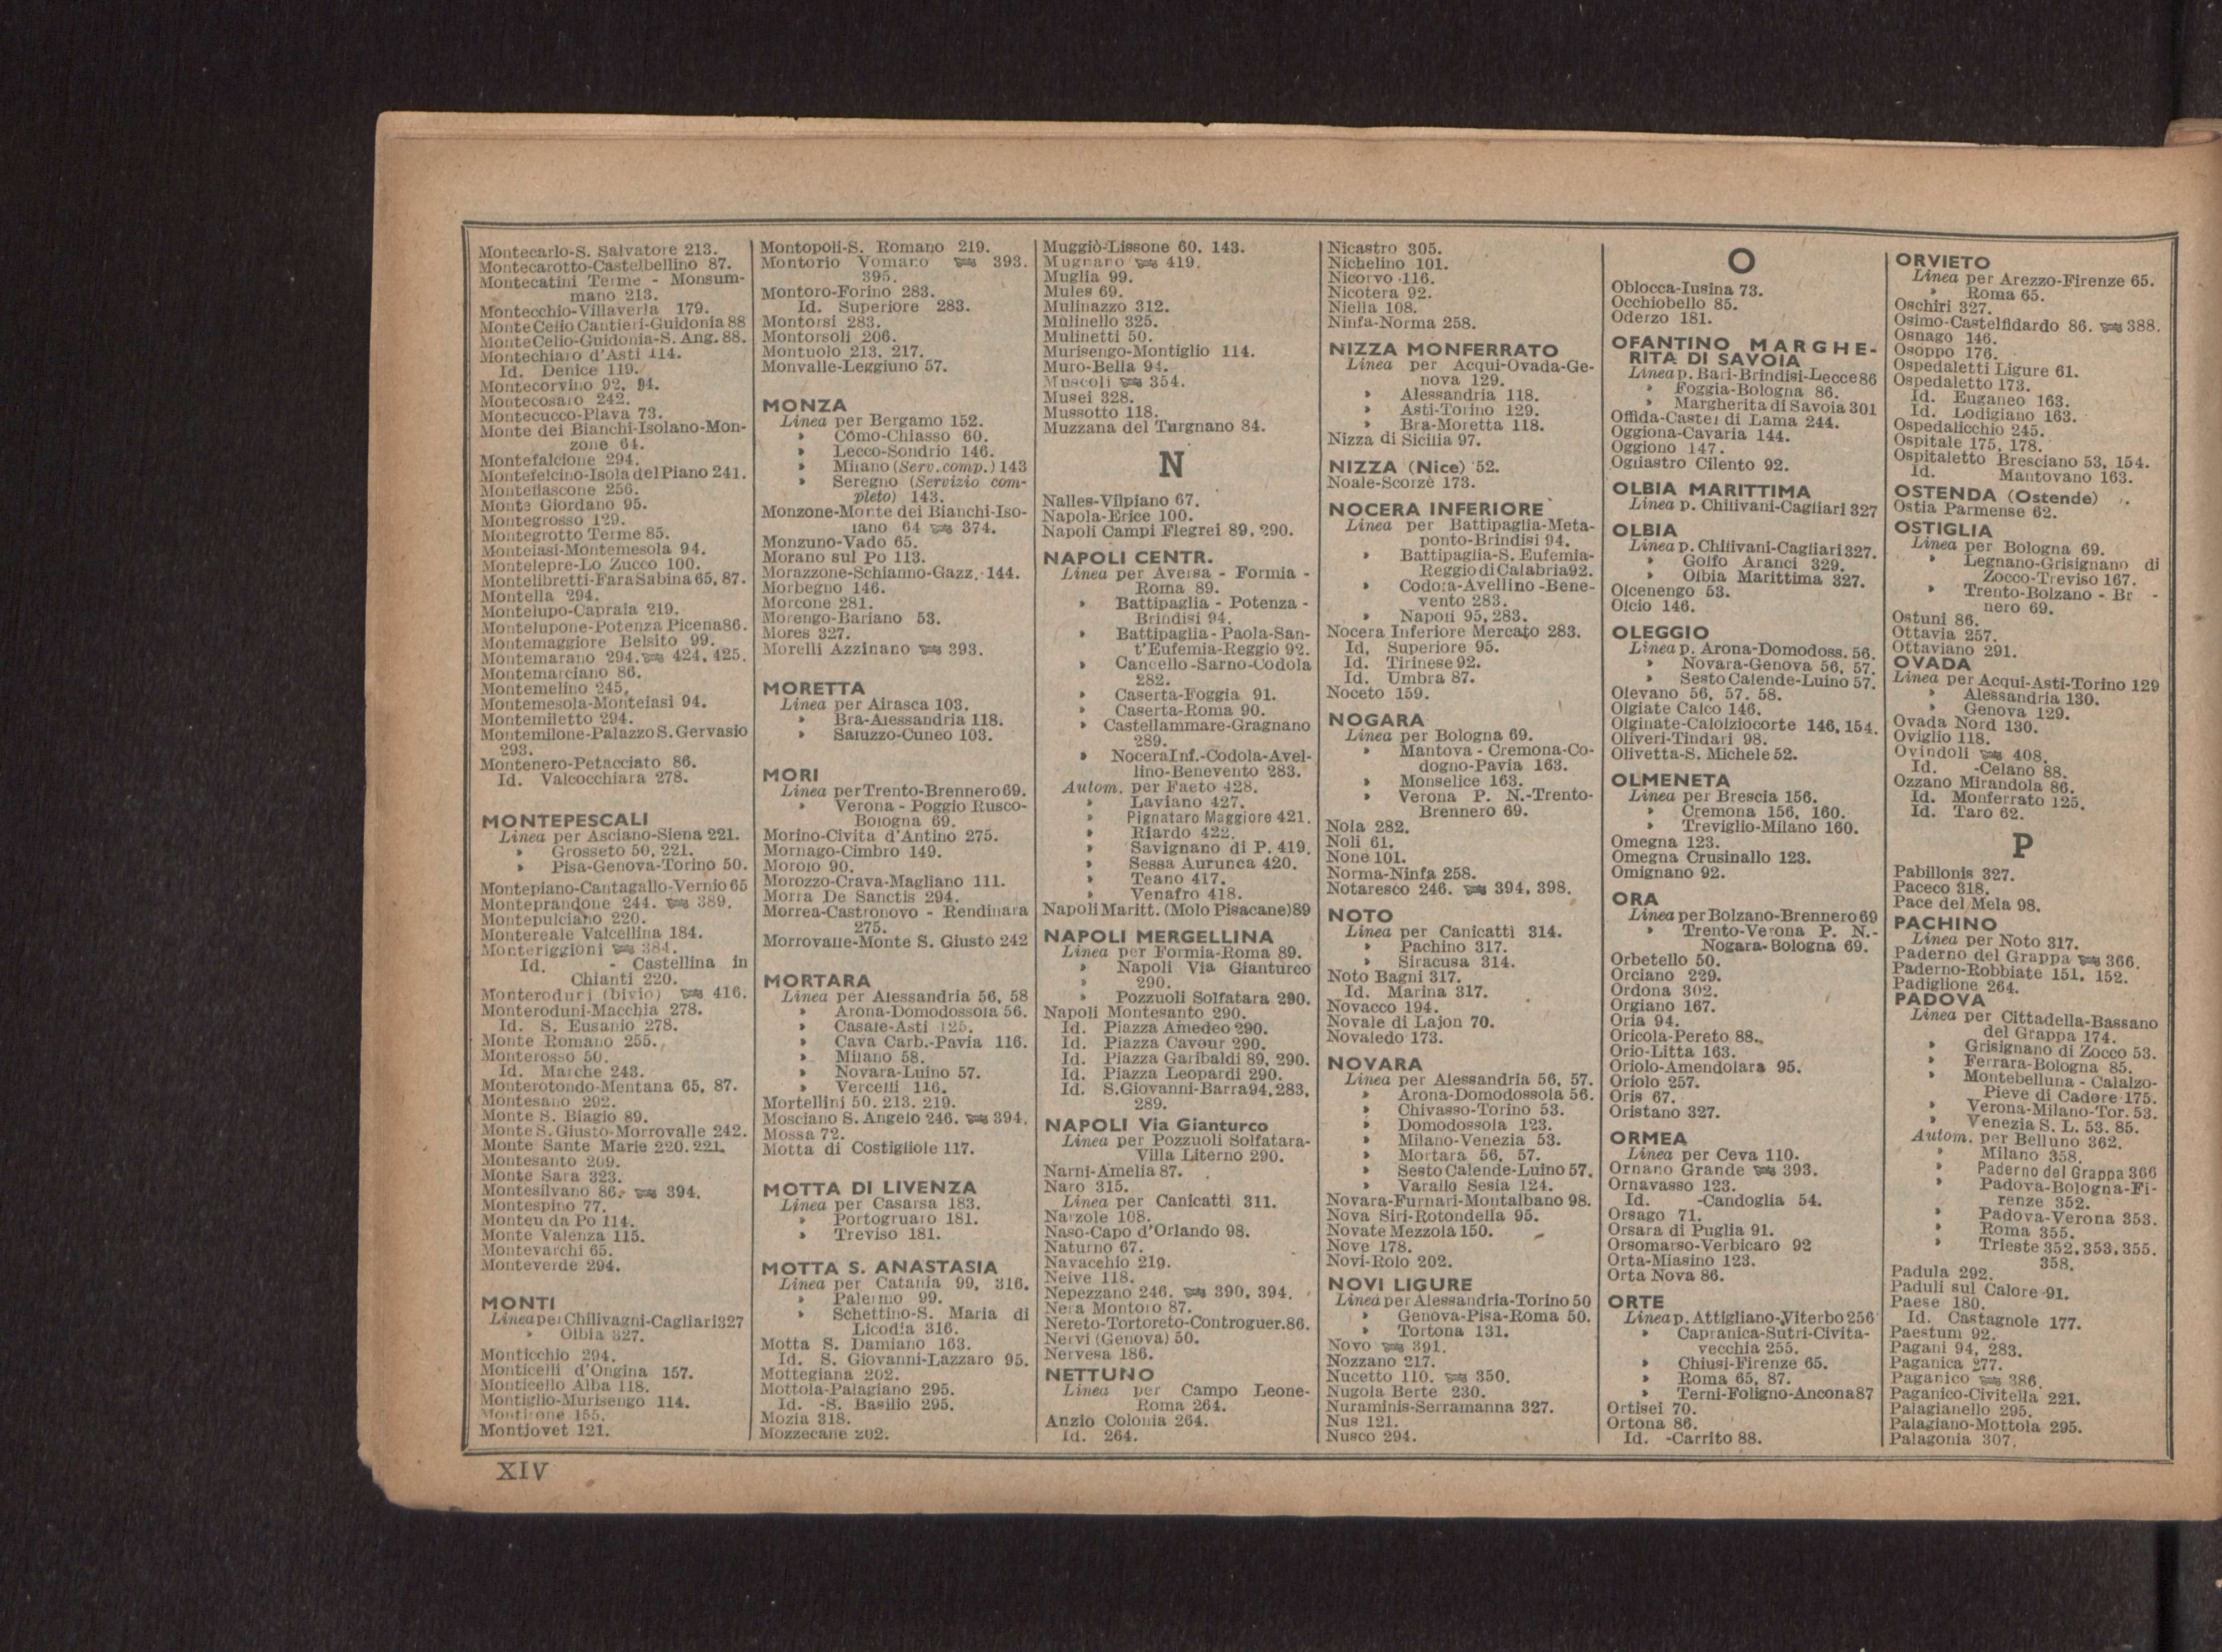 Montecarlo-S. Salvatore 213.
Montecarotto-Castelbellino 87.
Montecatini Terme - Monsum-
mano 213.
Montecchio-Villaverla 179.
Monte Celio Cantieri-Guidonia 88
Monte Celio-Guidonia-S. Ang. 88.
Montechiaro d'Asti 114.
Id. Denice 119.
Montecorvino 92, 94.
Montecosaro 242.
Montecucco-Plava 73.
Monte dei Bianchi-Isolano-Mon-
zone 64.
Montefalcione 294.
Montefelcino-Isola del Piano 241.
Montefiascone 256.
Monte Giordano 95.
Montegrosso 129.
Montegrotto Terme 85.
Monteiasi-Montemesola 94.
Montelepre-Lo Zucco 100.
Montelibretti-Fara Sabina 65, 87.
Montella 294.
Montelupo-Capraia 219.
Montelupone-Potenza Picena 86.
Montemaggiore Belsito 99.
Montemarano 294. 424, 425.
Montemarciano 86.
Montemelino 245.
Montemesola-Monteiasi 94.
Montemiletto 294.
Montemilone-Palazzo S. Gervasio
293.
Montenero-Petacciato 86.
Id. Valcocchiara 278.
MONTEPESCALI
Linea per Asciano-Siena 221.
» Grosseto 50, 221.
» Pisa-Genova-Torino 50.
Montepiano-Cantagallo-Vernio 65
Monteprandone 244. 389.
Montepulciano 220.
Montereale Valcellina 184.
Monteriggioni 384.
Id. - Castellina in
Chianti 220.
Monteroduni (bivio) 416.
Monteroduni-Macchia 278.
Id. S. Eusanio 278.
Monte Romano 255.
Monterosso 50.
Id. Marche 243.
Monterotondo-Mentana 65, 87.
Montesano 292.
Monte S. Biagio 89.
Monte S. Giusto-Morrovalle 242.
Monte Sante Marie 220. 221.
Montesanto 209.
Monte Sara 323.
Montesilvano 86. 394.
Montespino 77.
Monteu da Po 114.
Monte Valenza 115.
Montevarchi 65.
Monteverde 294.
MONTI
Linea per Chilivagni-Cagliari 327
» Olbia 327.
Monticchio 294.
Monticelli d'Ongina 157.
Monticello Alba 118.
Montiglio-Murisengo 114.
Montirone 155.
Montjovet 121.
Montopoli-S. Romano 219.
Montorio Vomano 393.
395.
Montoro-Forino 283.
Id. Superiore 283.
Montorsi 283.
Montorsoli 206.
Montuolo 213, 217.
Monvalle-Leggiuno 57.
MONZA
Linea per Bergamo 152.
» Como-Chiasso 60.
» Lecco-Sondrio 146.
» Milano (Serv. comp.) 143
» Seregno (Servizio com-
pleto) 143.
Monzone-Monte dei Bianchi-Iso-
lano 64 374.
Monzuno-Vado 65.
Morano sul Po 113.
Morazzone-Schianno-Gazz. 144.
Morbegno 146.
Morcone 281.
Morengo-Bariano 53.
Mores 327.
Morelli Azzinano 393.
MORETTA
Linea per Airasca 103.
» Bra-Alessandria 118.
» Saluzzo-Cuneo 103.
MORI
Linea per Trento-Brennero 69.
» Verona - Poggio Rusco-
Bologna 69.
Morino-Civita d'Antino 275.
Mornago-Cimbro 149.
Morolo 90.
Morozzo-Crava-Magliano 111.
Morra De Sanctis 294.
Morrea-Castronovo - Rendinara
275.
Morrovalle-Monte S. Giusto 242
MORTARA
Linea per Alessandria 56, 58
» Arona-Domodossola 56.
» Casale-Asti 125.
» Cava Carb.-Pavia 116.
» Milano 58.
» Novara-Luino 57.
» Vercelli 116.
Mortellini 50, 213, 219.
Mosciano S. Angelo 246. 394.
Mossa 72.
Motta di Costigliole 117.
MOTTA DI LIVENZA
Linea per Casarsa 183.
» Portogruaro 181.
» Treviso 181.
MOTTA S. ANASTASIA
Linea per Catania 99, 316.
» Palermo 99.
» Schettino-S. Maria di
Licodia 316.
Motta S. Damiano 163.
Id. S. Giovanni-Lazzaro 95.
Mottegiana 202.
Mottola-Palagiano 295.
Id. -S. Basilio 295.
Mozia 318.
Mozzecane 202.
Muggiò-Lissone 60, 143.
Mugnano 419.
Muglia 99.
Mules 69.
Mulinazzo 312.
Mulinello 325.
Mulinetti 50.
Murisengo-Montiglio 114.
Muro-Bella 94.
Muscoli 354.
Musei 328.
Mussotto 118.
Muzzana del Turgnano 84.
N
Nalles-Vilpiano 67.
Napola-Erice 100.
Napoli Campi Flegrei 89, 290.
NAPOLI CENTR.
Linea per Aversa - Formia -
Roma 89.
» Battipaglia - Potenza -
Brindisi 94.
» Battipaglia - Paola-San-
t'Eufemia-Reggio 92.
» Cancello-Sarno-Codola
282.
» Caserta-Foggia 91.
» Caserta-Roma 90.
» Castellammare-Gragnano
289.
» Nocera Inf.-Codola-Avel-
lino-Benevento 283.
Autom. per Faeto 428.
» Laviano 427.
» Pignataro Maggiore 421.
» Riardo 422.
» Savignano di P. 419.
» Sessa Aurunca 420.
» Teano 417.
» Venafro 418.
Napoli Maritt. (Molo Pisacane) 89
NAPOLI MERGELLINA
Linea per Formia-Roma 89.
» Napoli Via Gianturco
» 290.
» Pozzuoli Solfatara 290.
Napoli Montesanto 290.
Id. Piazza Amedeo 290.
Id. Piazza Cavour 290.
Id. Piazza Garibaldi 89, 290.
Id. Piazza Leopardi 290.
Id. S. Giovanni-Barra 94, 283,
289.
NAPOLI Via Gianturco
Linea per Pozzuoli Solfatara-
Villa Literno 290.
Narni-Amelia 87.
Naro 315.
Linea per Canicattì 311.
Narzole 108.
Naso-Capo d'Orlando 98.
Naturno 67.
Navacchio 219.
Neive 118.
Nepezzano 246. 390, 394.
Nera Montoro 87.
Nereto-Tortoreto-Controguer. 86.
Nervi (Genova) 50.
Nervesa 186.
NETTUNO
Linea per Campo Leone-
Roma 264.
Anzio Colonia 264.
Id. 264.
Nicastro 305.
Nichelino 101.
Nicorvo 116.
Nicotera 92.
Niella 108.
Ninfa-Norma 258.
NIZZA MONFERRATO
Linea per Acqui-Ovada-Ge-
nova 129.
» Alessandria 118.
» Asti-Torino 129.
» Bra-Moretta 118.
Nizza di Sicilia 97.
NIZZA (Nice) 52.
Noale-Scorzè 173.
NOCERA INFERIORE
Linea per Battipaglia-Meta-
ponto-Brindisi 94.
» Battipaglia-S. Eufemia-
Reggio di Calabria 92.
» Codola-Avellino-Bene-
vento 283.
» Napoli 95, 283.
Nocera Inferiore Mercato 283.
Id. Superiore 95.
Id. Tirinese 92.
Id. Umbra 87.
Noceto 159.
NOGARA
Linea per Bologna 69.
» Mantova - Cremona-Co-
dogno-Pavia 163.
» Monselice 163.
» Verona P. N.-Trento-
Brennero 69.
Nola 282.
Noli 61.
None 101.
Norma-Ninfa 258.
Notaresco 246. 394, 398.
NOTO
Linea per Canicattì 314.
» Pachino 317.
» Siracusa 314.
Noto Bagni 317.
Id. Marina 317.
Novacco 194.
Novale di Lajon 70.
Novaledo 173.
NOVARA
Linea per Alessandria 56, 57.
» Arona-Domodossola 56.
» Chivasso-Torino 53.
» Domodossola 123.
» Milano-Venezia 53.
» Mortara 56, 57.
» Sesto Calende-Luino 57.
» Varallo Sesia 124.
Novara-Furnari-Montalbano 98.
Nova Siri-Rotondella 95.
Novate Mezzola 150.
Nove 178.
Novi-Rolo 202.
NOVI LIGURE
Linea per Alessandria-Torino 50
» Genova-Pisa-Roma 50.
» Tortona 131.
Novo 391.
Nozzano 217.
Nucetto 110. 350.
Nugola Berte 230.
Nuraminis-Serramanna 327.
Nus 121.
Nusco 294.
O
Oblocca-Iusina 73.
Occhiobello 85.
Oderzo 181.
OFANTINO MARGHE-
RITA DI SAVOIA
Linea p. Bari-Brindisi-Lecce 86
» Foggia-Bologna 86.
» Margherita di Savoia 301
Offida-Castel di Lama 244.
Oggiona-Cavaria 144.
Oggiono 147.
Ogliastro Cilento 92.
OLBIA MARITTIMA
Linea p. Chilivani-Cagliari 327
OLBIA
Linea p. Chilivani-Cagliari 327.
» Golfo Aranci 329.
» Olbia Marittima 327.
Olcenengo 53.
Olcio 146.
OLEGGIO
Linea p. Arona-Domodoss. 56.
» Novara-Genova 56, 57.
» Sesto Calende-Luino 57.
Olevano 56, 57, 58.
Olgiate Calco 146.
Olginate-Calolziocorte 146, 154.
Oliveri-Tindari 98.
Olivetta-S. Michele 52.
OLMENETA
Linea per Brescia 156.
» Cremona 156, 160.
» Treviglio-Milano 160.
Omegna 123.
Omegna Crusinallo 123.
Omignano 92.
ORA
Linea per Bolzano-Brennero 69
» Trento-Verona P. N.-
Nogara-Bologna 69.
Orbetello 50.
Orciano 229.
Ordona 302.
Orgiano 167.
Oria 94.
Oricola-Pereto 88.
Orio-Litta 163.
Oriolo-Amendolara 95.
Oriolo 257.
Oris 67.
Oristano 327.
ORMEA
Linea per Ceva 110.
Ornano Grande 393.
Ornavasso 123.
Id. -Candoglia 54.
Orsago 71.
Orsara di Puglia 91.
Orsomarso-Verbicaro 92
Orta-Miasino 123.
Orta Nova 86.
ORTE
Linea p. Attigliano-Viterbo 256
» Capranica-Sutri-Civita-
vecchia 255.
» Chiusi-Firenze 65.
» Roma 65, 87.
» Terni-Foligno-Ancona 87
Ortisei 70.
Ortona 86.
Id. -Carrito 88.
ORVIETO
Linea per Arezzo-Firenze 65.
» Roma 65.
Oschiri 327.
Osimo-Castelfidardo 86. 388.
Osnago 146.
Osoppo 176.
Ospedaletti Ligure 61.
Ospedaletto 173.
Id. Euganeo 163.
Id. Lodigiano 163.
Ospedalicchio 245.
Ospitale 175, 178.
Ospitaletto Bresciano 53, 154.
Id. Mantovano 163.
OSTENDA (Ostende)
Ostia Parmense 62.
OSTIGLIA
Linea per Bologna 69.
» Legnano-Grisignano di
Zocco-Treviso 167.
» Trento-Bolzano - Br -
nero 69.
Ostuni 86.
Ottavia 257.
Ottaviano 291.
OVADA
Linea per Acqui-Asti-Torino 129
» Alessandria 130.
» Genova 129.
Ovada Nord 130.
Oviglio 118.
Ovindoli 408.
Id. -Celano 88.
Ozzano Mirandola 86.
Id. Monferrato 125.
Id. Taro 62.
P
Pabillonis 327.
Paceco 318.
Pace del Mela 98.
PACHINO
Linea per Noto 317.
Paderno del Grappa 366.
Paderno-Robbiate 151, 152.
Padiglione 264.
PADOVA
Linea per Cittadella-Bassano
del Grappa 174.
» Grisignano di Zocco 53.
» Ferrara-Bologna 85.
» Montebelluna - Calalzo-
Pieve di Cadore 175.
» Verona-Milano-Tor. 53.
» Venezia S. L. 53. 85.
Autom. per Belluno 362.
» Milano 358.
» Paderno del Grappa 366
» Padova-Bologna-Fi-
renze 352.
» Padova-Verona 353.
» Roma 355.
» Trieste 352, 353, 355.
358.
Padula 292.
Paduli sul Calore 91.
Paese 180.
Id. Castagnole 177.
Paestum 92.
Pagani 94, 283.
Paganica 277.
Paganico 386.
Paganico-Civitella 221.
Palagianello 295.
Palagiano-Mottola 295.
Palagonia 307.
XIV